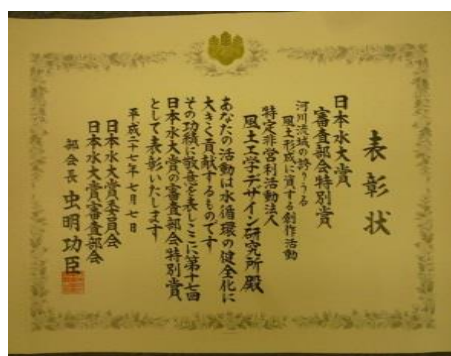 表彰状
日本水大賞
審査部会特別賞
河川流域の誇りうる
風土形成に資する創作活動
特定非営利活動法人
風土工学デザイン研究所殿
あなたの活動は水循環の健全化に
大きく貢献するものです
その功績に敬意を表しここに第十七回
日本水大賞の審査部会特別賞
として表彰いたします
平成二十七年七月七日
日本水大賞委員会
日本水大賞審査部会
部会長 虫明功臣